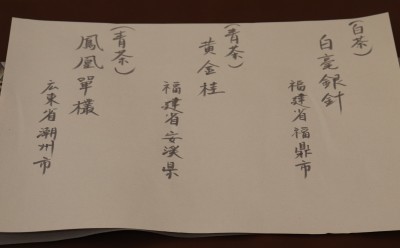 (白茶)
白毫銀針
福建省福鼎市
(青茶)
黄金桂
福建省安渓県
(青茶)
鳳凰單欉
広東省潮州市